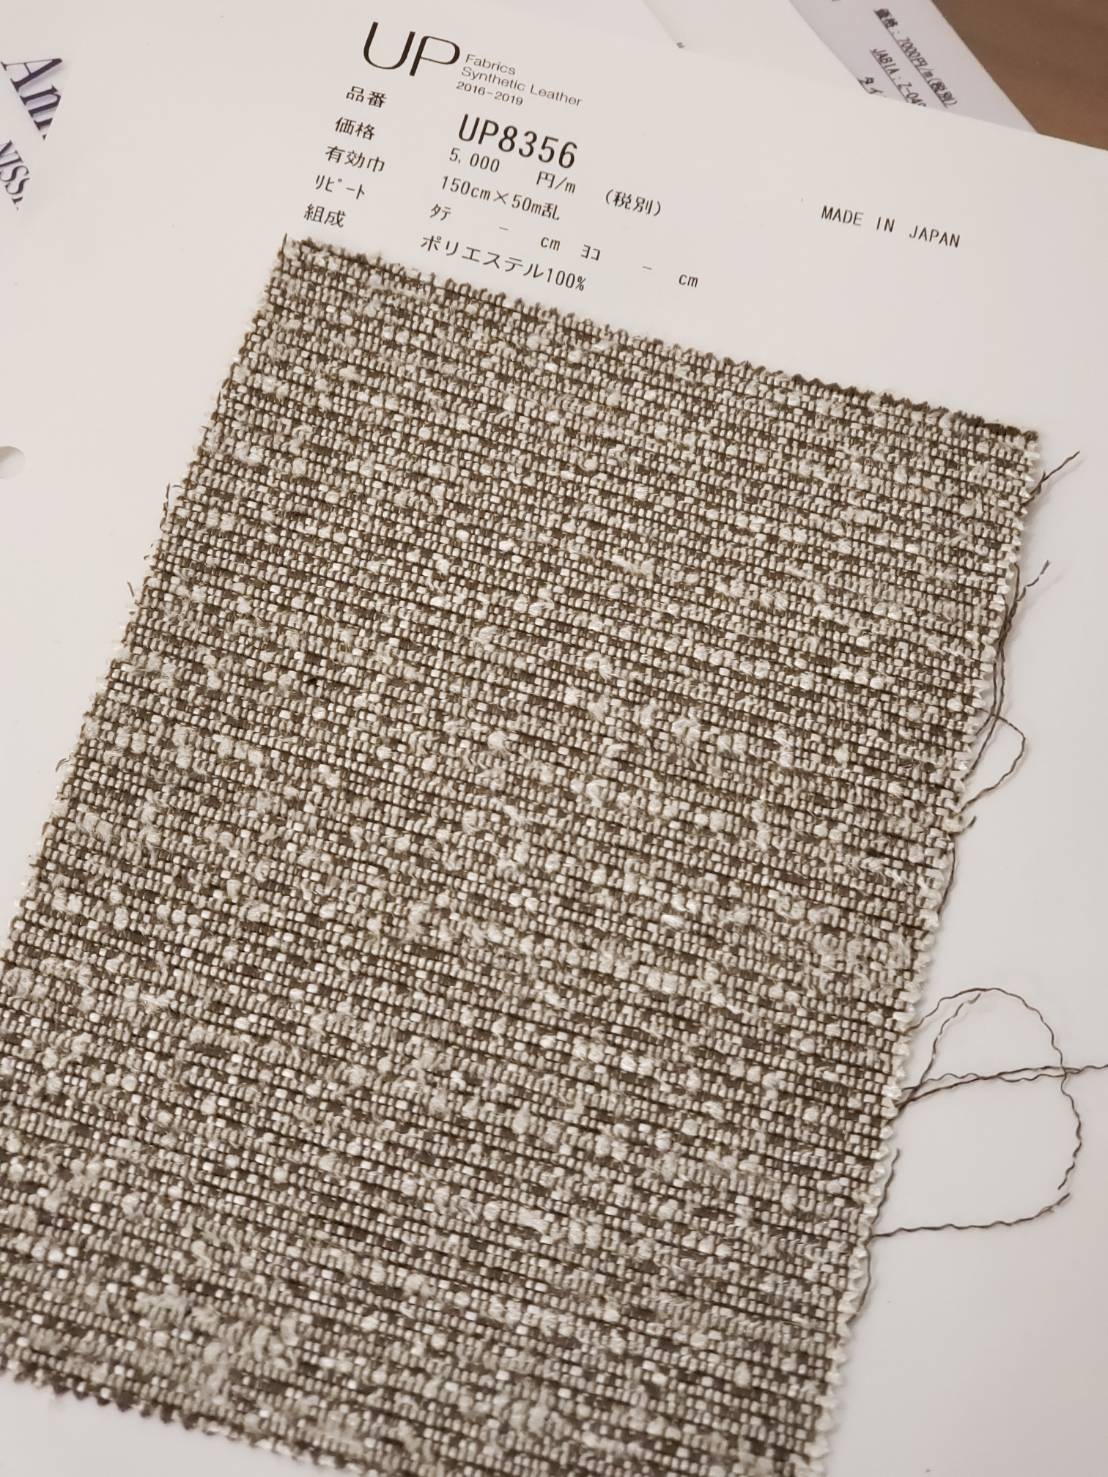 UP Fabrics
Synthetic Leather
2016-2019
品番 UP8356
価格 5,000 円/m (税別)
有効巾 150cm×50m乱
リピート タテ - cm ヨコ - cm
組成 ポリエステル100%
MADE IN JAPAN
価格:7000円/m(税別)